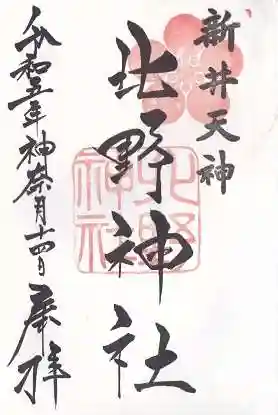 新井天神
北野神社
北野神社
令和五年神奈月十四日
奉拝